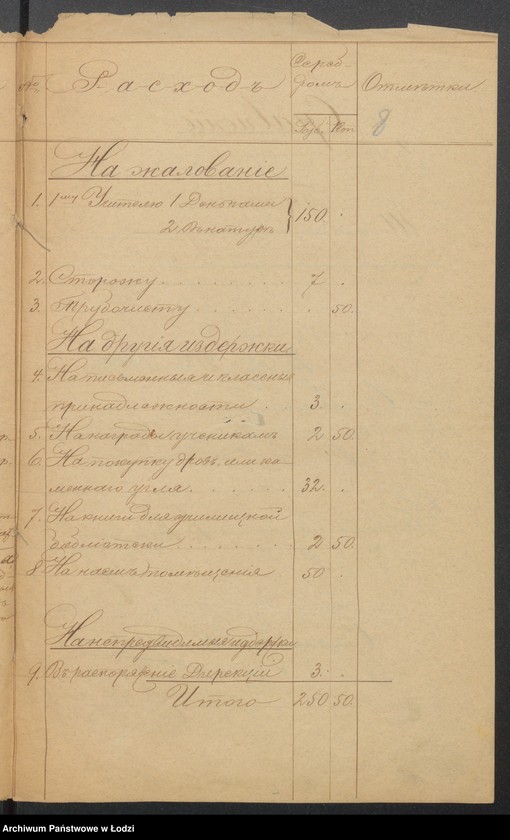 № Расходъ Сереб-
ромъ Отмѣтки
Руб. Коп. 8
На жалованіе
1. 1му Учителю 1 Деньгами
2 Въ натурѣ } 150. .
2. Сторожу . . . . . . . 7 .
3. Трубочисту . . . . . . 50.
На другія издержки
4. На письменныя и классныя
принадлежности . 3. .
5. На награды ученикамъ 2 50.
6. На покупку дровъ, или ка-
меннаго угля . . . . . . 32. .
7. На книги для училищной
библіотеки . . . . . . 2 50.
8 На наемъ помѣщенія 50 .
На непредвидимыя издержки
9. Въ распоряженіе Дирекціи 3. .
Итого 250 50.
Archiwum Państwowe w Łodzi